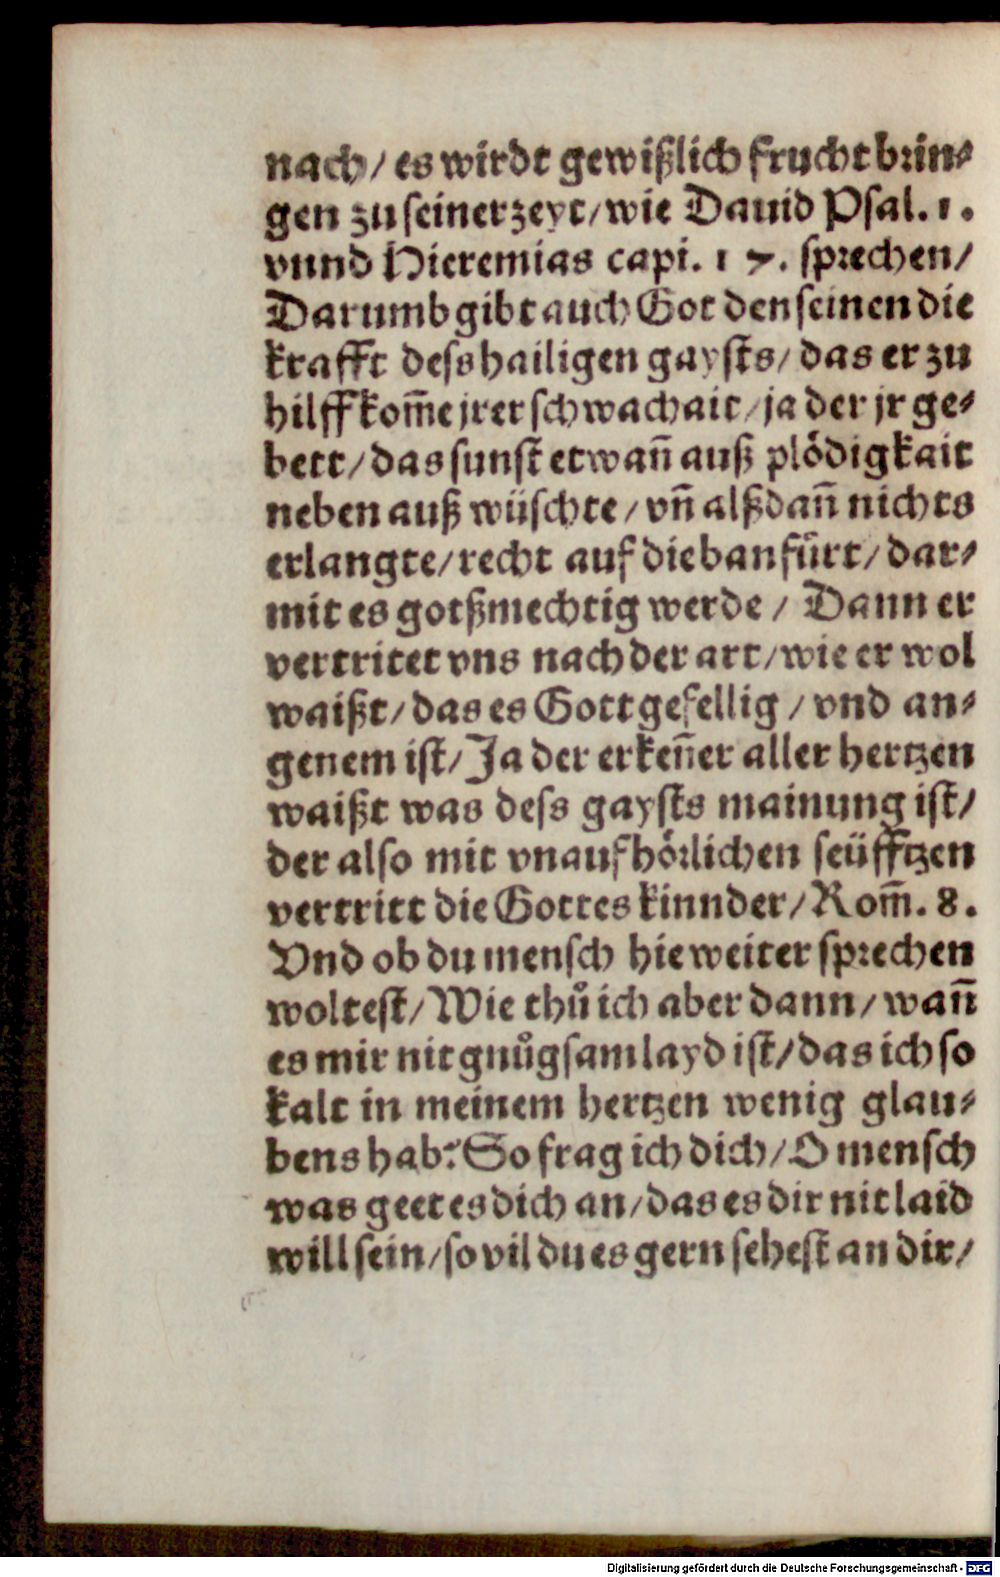 nach/ es wirdt gewißlich frucht brin⸗
gen zu seiner zeyt/ wie Dauid Psal. 1.
vnnd Hieremias capi. 1 7. sprechen/
Darumb gibt auch Got den seinen die
krafft dess hailigen gaysts/ das er zu
hilff kom̄e jrer schwachait/ ja der jr ge⸗
bett/ das sunst etwan̄ auß plödigkait
neben auß wüschte/ vn̄ alßdan̄ nichts
erlangte/ recht auf die ban fürt/ dar⸗
mit es gotßmechtig werde/ Dann er
vertritet vns nach der art/ wie er wol
waißt/ das es Gott gefellig/ vnd an⸗
genem ist/ Ja der erken̄er aller hertzen
waißt was dess gaysts mainung ist/
der also mit vnaufhörlichen seüfftzen
vertritt die Gottes kinnder/ Rom̄. 8.
Vnd ob du mensch hie weiter sprechen
woltest/ Wie thů ich aber dann/ wan̄
es mir nit gnůgsam layd ist/ das ich so
kalt in meinem hertzen wenig glau⸗
bens hab? So frag ich dich/ O mensch
was geet es dich an/ das es dir nit laid
will sein/ so vil du es gern sehest an dir/
Digitalisierung gefördert durch die Deutsche Forschungsgemeinschaft - DFG